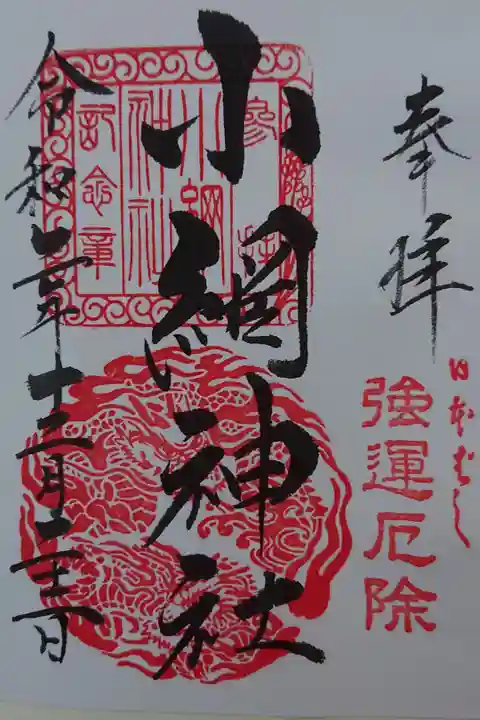 奉拝
日本ばし
強運厄除
小網神社
参拝
小網神社
記念章
令和二年十二月二十一日